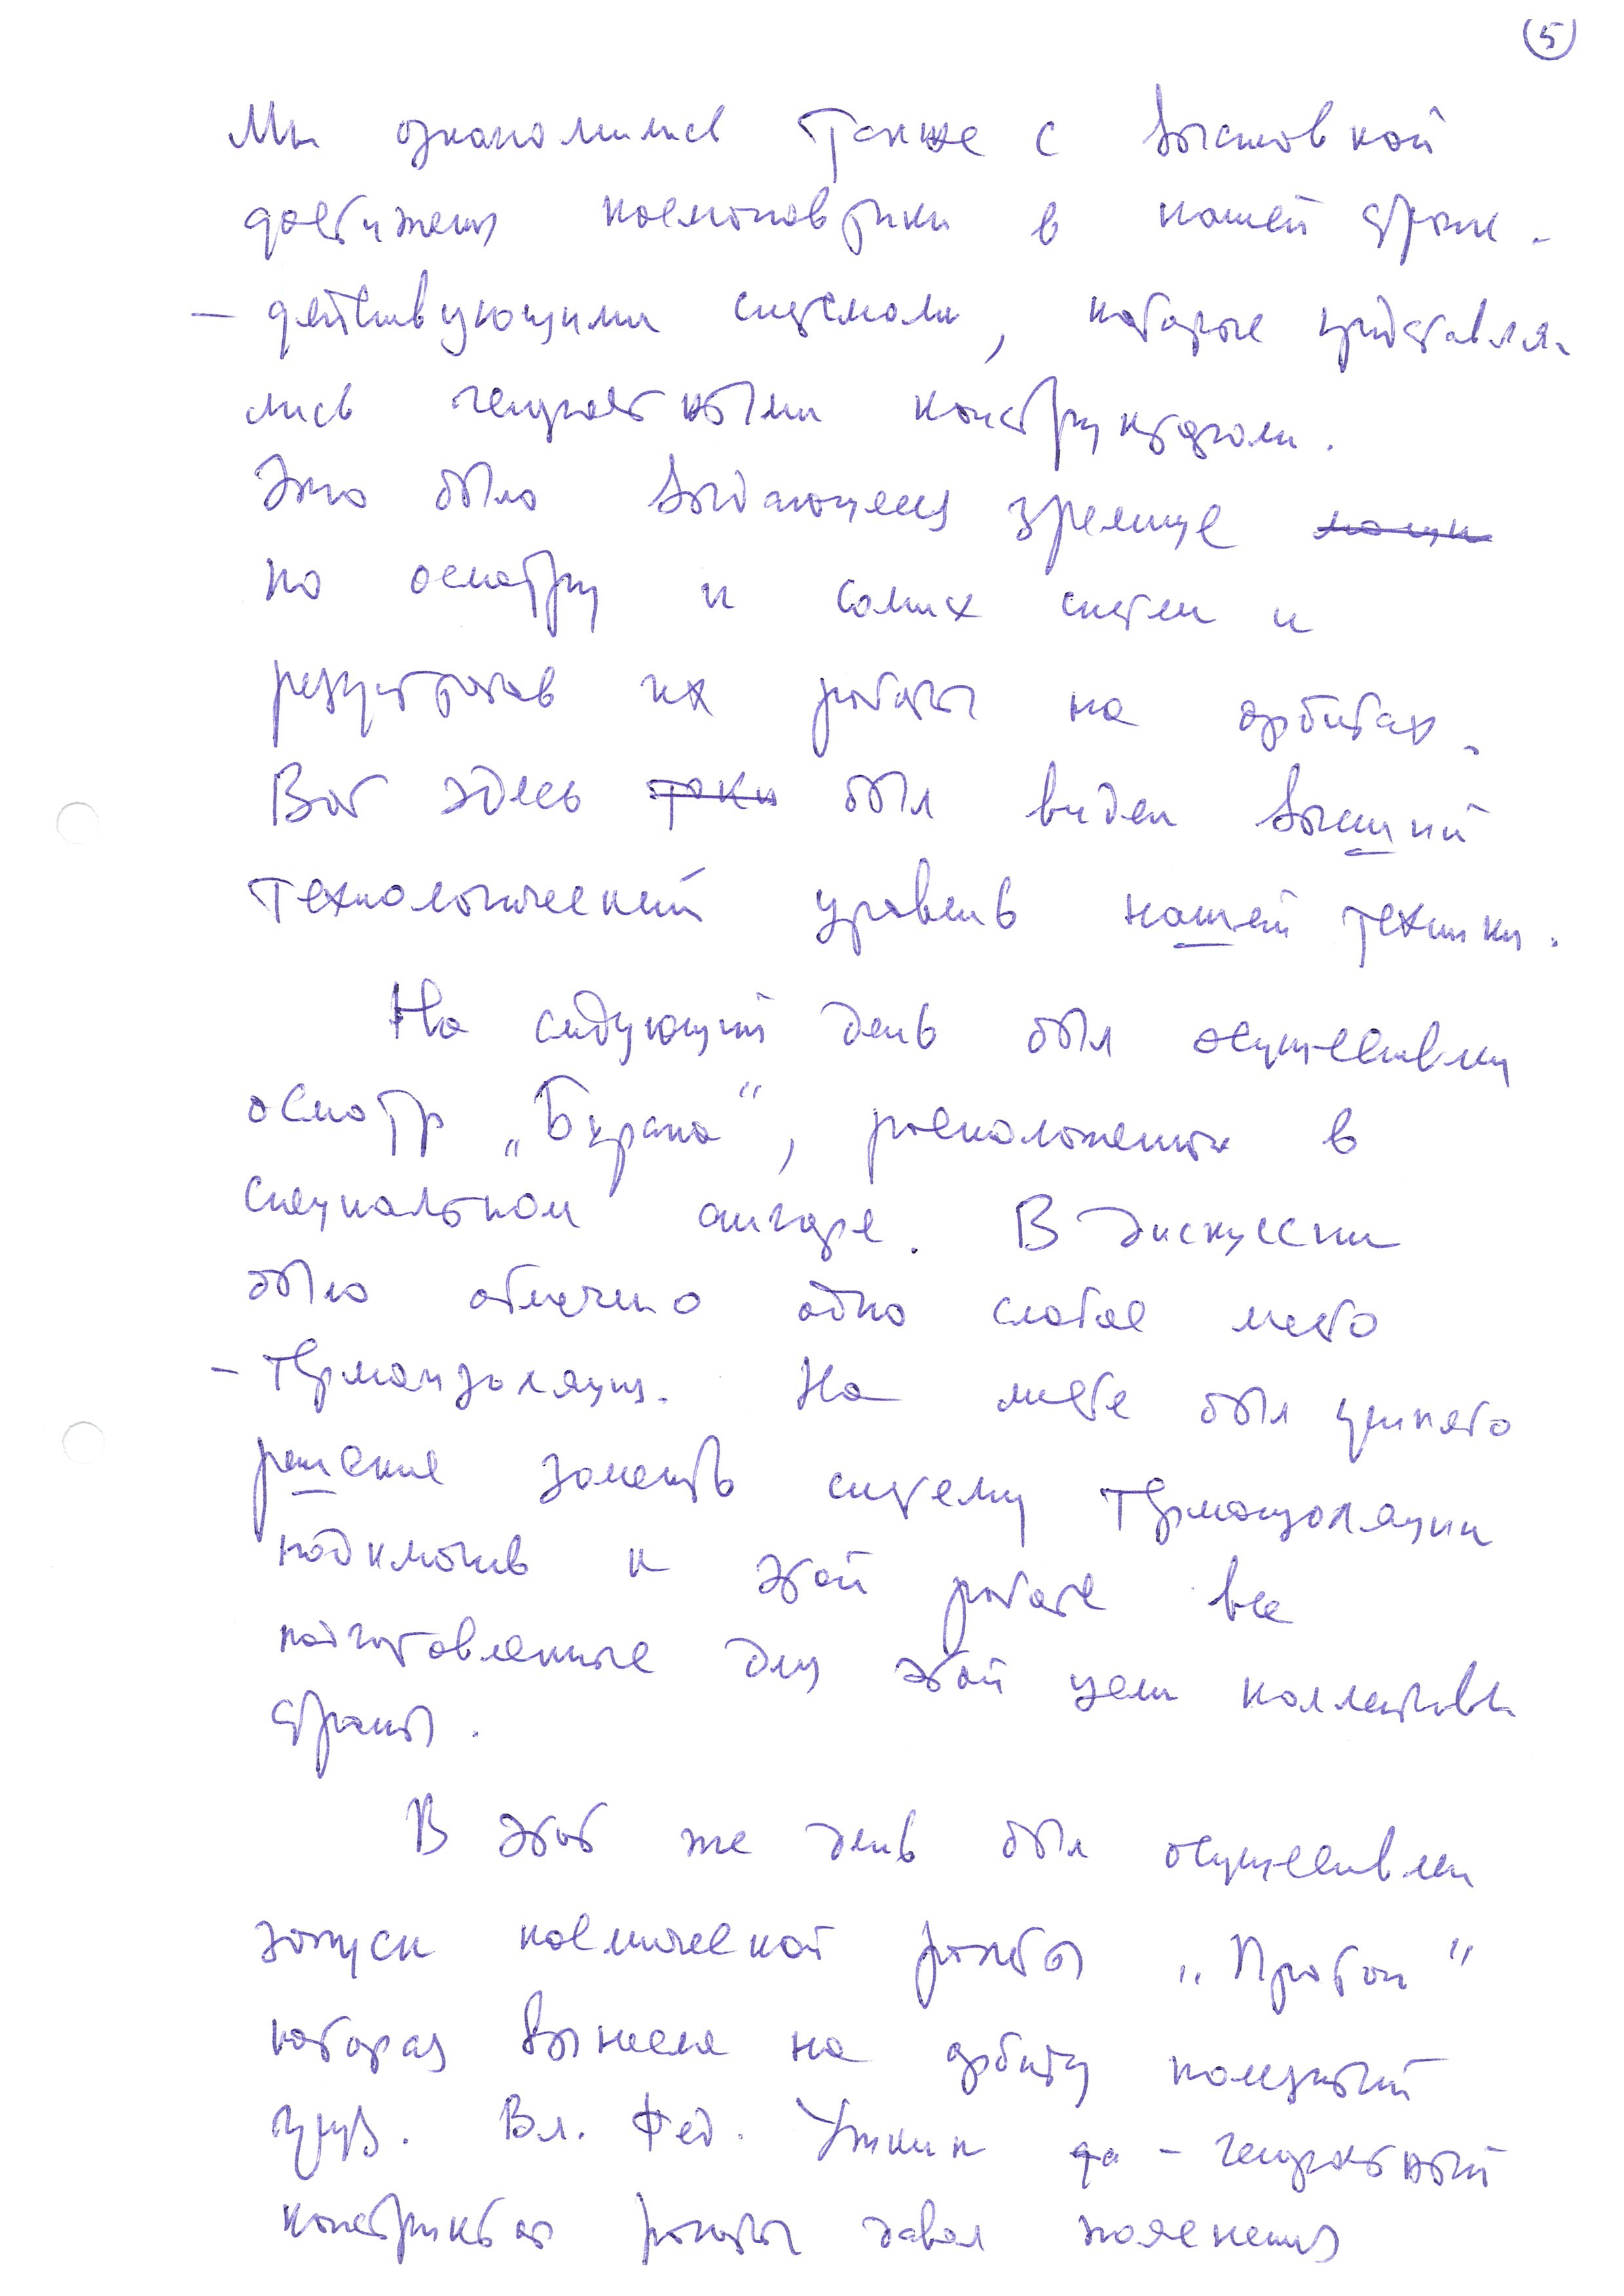 5
Мы ознакомились также с выставкой
достижения космонавтики в нашей стране.
– действующими системами, которые представля-
лись генеральными конструкторами.
Это было выдающееся зрелище
по осмотру и самих систем и
результатов их работы на орбитах.
Вот здесь таки был виден высший
технологический уровень нашей техники.
На следующий день был осуществлен
осмотр „Бурана“, расположенном в
специальном ангаре. В дискуссии
было отмечено одно слабое место
– термоизоляция. На месте был принято
решение заменить систему термоизоляции
подключив к этой работе все
подготовленные для этой цели коллективы
страны.
В этот же день был осуществлен
запуск космической ракеты „Протон“
которая вынесла на орбиту полезный
груз. Вл. Фед. Уткин да – генеральный
конструктор ракеты давал пояснения